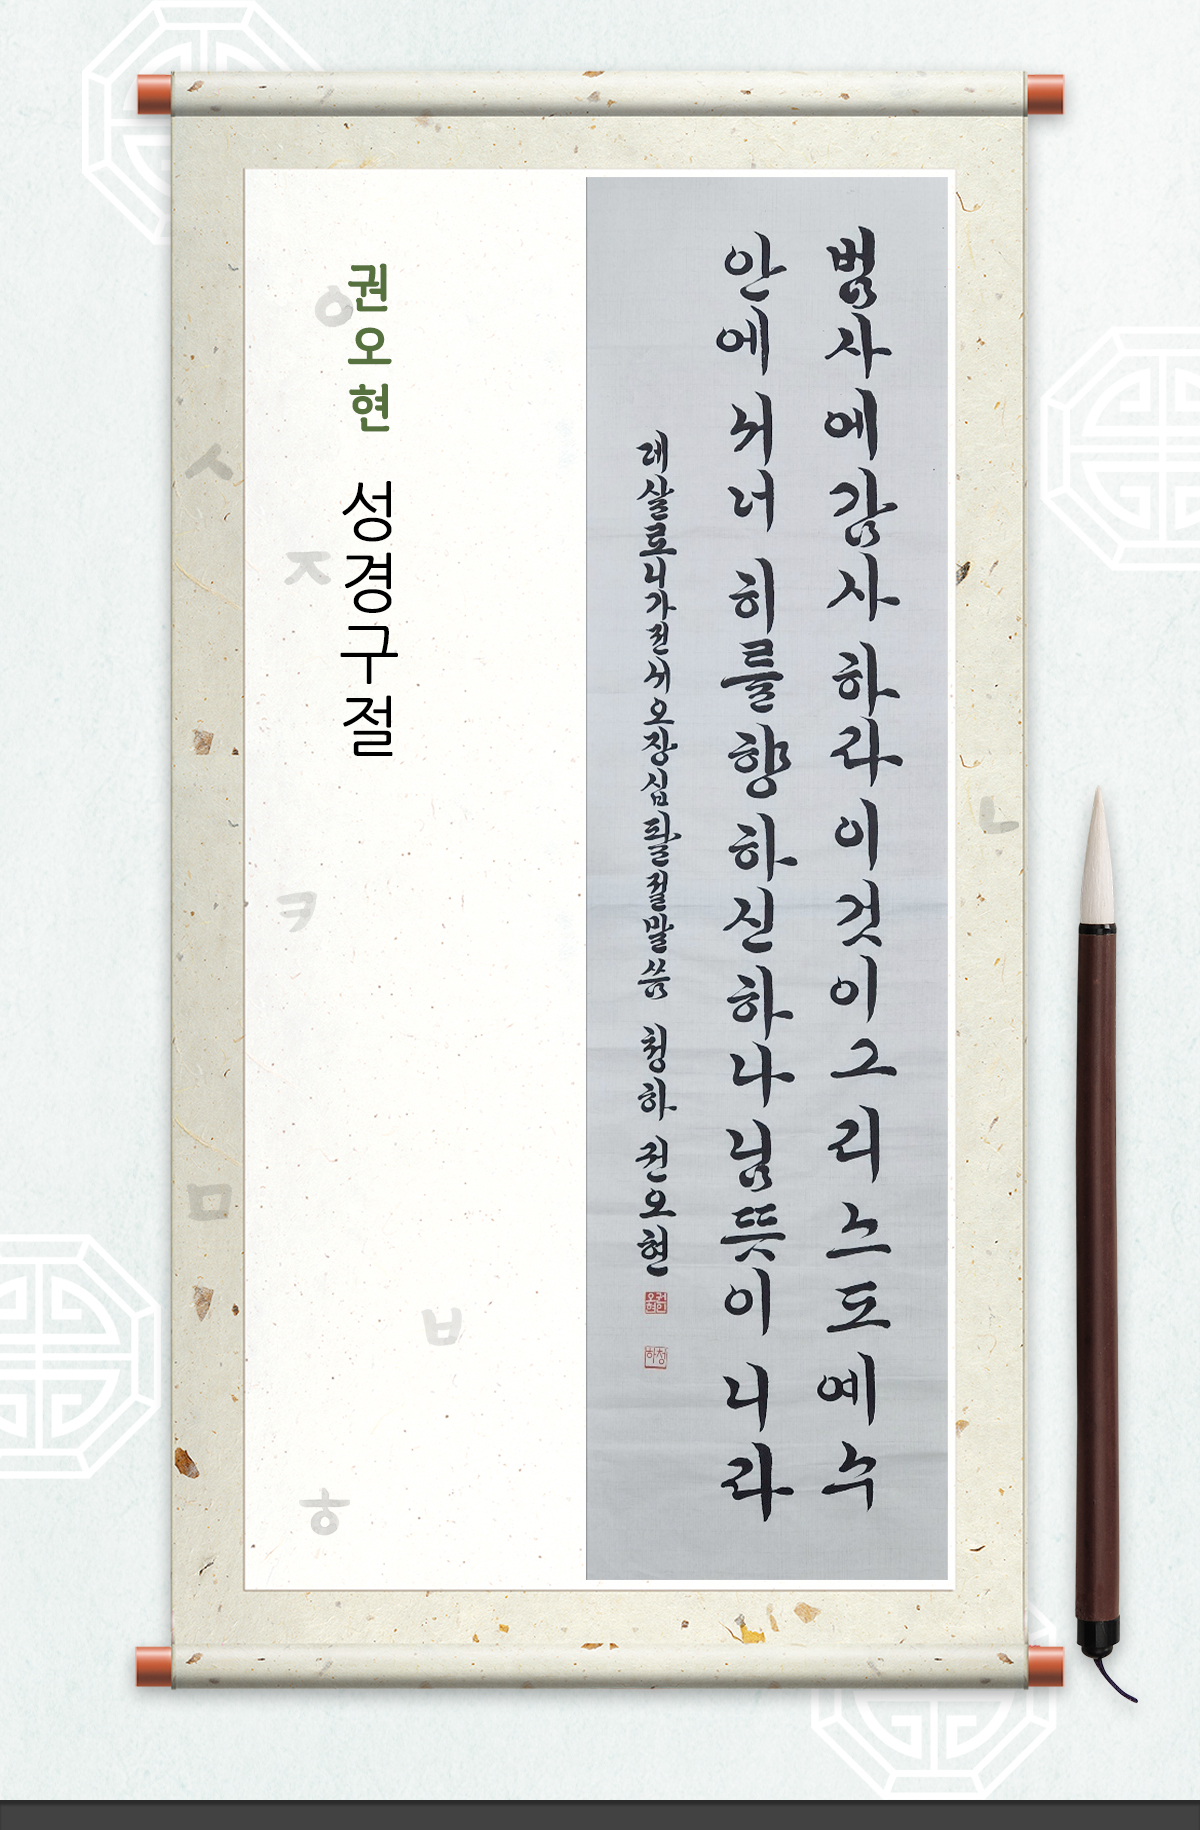 권오현 성경구절
범사에감사하라이것이그리스도예수
안에서너히를향하신하나님뜻이니라
데살로니가전서오장십팔절말씀 청하 권오현
권오현
청하
ㅇ
ㅅ
ㅈ
ㅋ
ㄴ
ㅁ
ㅂ
ㅎ